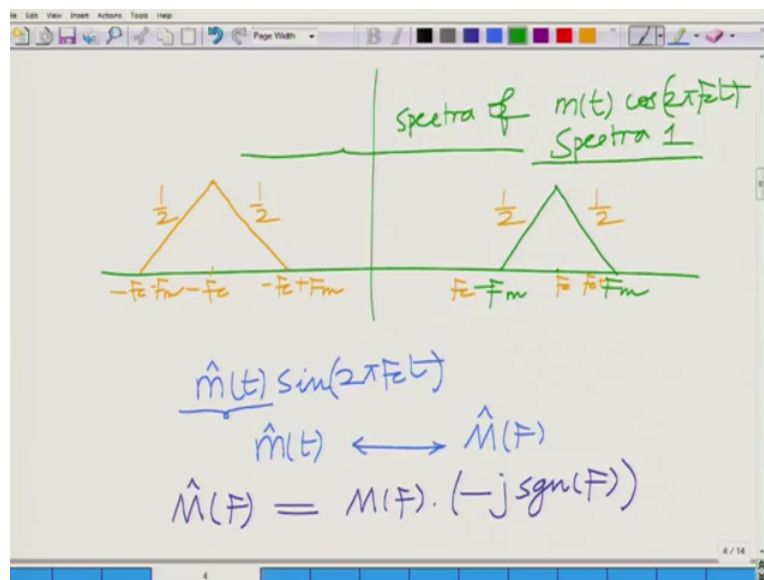 File Edit View Insert Actions Tools Help
Page Width
B I
spectra of m(t) cos(2πFct)
Spectra 1
1/2 1/2 1/2 1/2
-Fc-Fm -Fc -Fc+Fm Fc-Fm Fc Fc+Fm
m̂(t) sin(2πFct)
m̂(t) ⟷ M̂(F)
M̂(F) = M(F). (-j sgn(F))
4/14
4